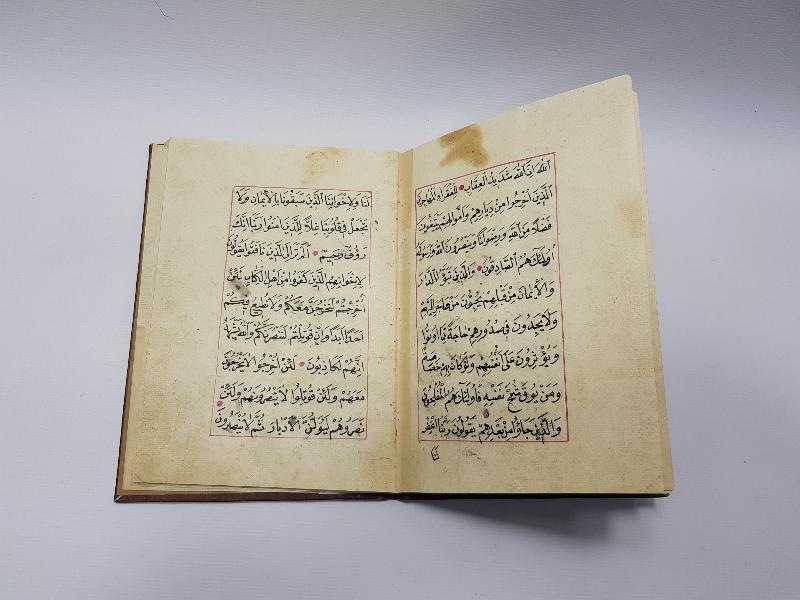 الله ان الله شديد العقاب للفقراء المهاجرين
الذين اخرجوا من ديارهم واموالهم يبتغون
فضلا من الله ورضوانا وينصرون الله ورسوله
اولئك هم الصادقون والذين تبوؤ الدار
والايمان من قبلهم يحبون من هاجر اليهم
ولا يجدون في صدورهم حاجة مما اوتوا
ويؤثرون على انفسهم ولو كان بهم خصاصة
ومن يوق شح نفسه فاولئك هم المفلحون
والذين جاؤا من بعدهم يقولون ربنا اغفر
لنا
لنا ولاخواننا الذين سبقونا بالايمان ولا
تجعل في قلوبنا غلا للذين امنوا ربنا انك
رؤف رحيم الم تر الى الذين نافقوا يقولون
لاخوانهم الذين كفروا من اهل الكتاب لئن
اخرجتم لنخرجن معكم ولا نطيع فيكم
احدا ابدا وان قوتلتم لننصرنكم والله يشهد
انهم لكاذبون لئن اخرجوا لا يخرجون
معهم ولئن قوتلوا لا ينصرونهم ولئن
نصروهم ليولن الادبار ثم لا ينصرون